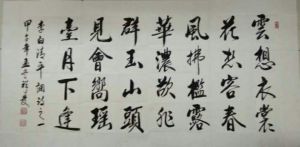 雲想衣裳
花想容春
風拂檻露
華濃若非
群玉山頭
見會嚮瑤
臺月下逢
李白清平調詩之一
甲午年